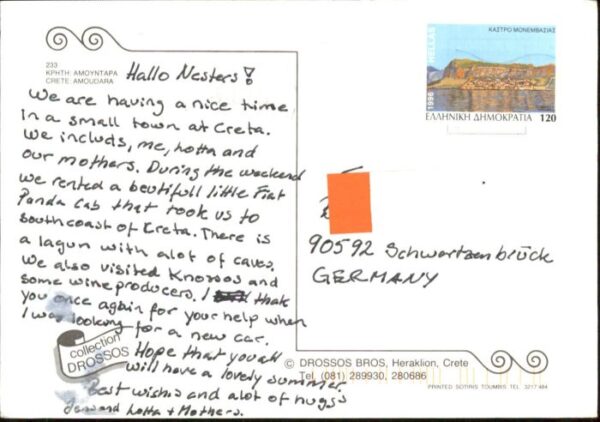 233
ΚΡΗΤΗ: ΑΜΟΥΝΤΑΡΑ
CRETE: AMOUDARA
Hallo Nesters!
We are having a nice time
in a small town at Creta.
We includs, me, Lotta and
our mothers. During the weekend
we rented a beutifull little Fiat
Panda Cab that took us to
southcoast of Creta. There is
a lagun with alot of caves.
We also visited Knossos and
some wineproducers. I thak
you once again for your help when
I was looking for a new car.
Hope that you all
will have a lovely summer.
Best wishes and alot of huggs
Lotta + Mothers.
collection
DROSSOS
ΚΑΣΤΡΟ ΜΟΝΕΜΒΑΣΙΑΣ
HELLAS
1996
ΕΛΛΗΝΙΚΗ ΔΗΜΟΚΡΑΤΙΑ 120
90592 Schwartzenbrück
GERMANY
© DROSSOS BROS, Heraklion, Crete
Tel. (081) 289930, 280686
PRINTED SOTIRIS TOUMBIS TEL. 3217 484